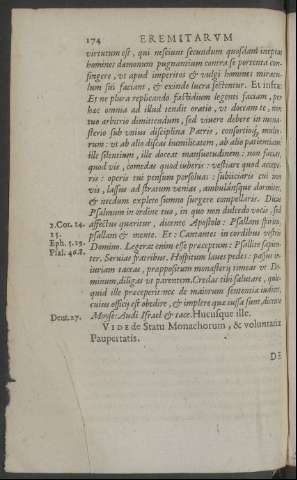 174 EREMITARVM
virtutum est, qui nesciunt secundum quosdam ineptos
homines dæmonum pugnantium contra se portenta con-
fingere, vt apud imperitos & vulgi homines miracu-
lum sui faciant, & exinde lucra sectentur. Et infra:
Et ne plura replicando fastidium legenti faciam, per
hæc omnia ad illud tendit oratio, vt doceam te, non
tuo arbitrio dimittendum, sed viuere debere in mona-
sterio sub vnius disciplina Patris, consortioq́; multo-
rum: vt ab alio discas humilitatem, ab alio patientiam:
ille silentium, ille doceat mansuetudinem: non facias,
quod vis, comedas quod iuberis: vestiare quod accepe-
ris: operis tui pensum persoluas: subiiciaris cui non
vis, lassus ad stratum venias, ambulansque dormites,
& necdum expleto somno surgere compellaris. Dicas
Psalmum in ordine tuo, in quo non dulcedo vocis, sed
2. Cor. 14. affectus quæritur, dicente Apostolo: Psallam spiritu,
15. psallam & mente. Et: Cantantes in cordibus vestris
Eph. 5. 19. Domino. Legerat enim esse præceptum: Psallite sapien-
Psal. 46. 8. ter. Seruias fratribus. Hospitum laues pedes: passus in-
iuriam taceas, præpositum monasterij timeas vt Do-
minum, diligas vt parentem. Credas tibi salutare, quic-
quid ille præceperit: nec de maiorum sententia iudices,
cuius officij est obedire, & implere quæ iussa sunt, dicente
Deut. 27. Moyse: Audi Israel & tace. Hucusque ille.
VIDE de Statu Monachorum, & voluntaria
Paupertatis.
DE